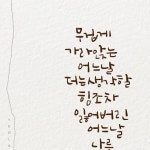 무겁게
가라앉는
어느날
더는생각할
힘조차
잃어버린
어느날
나를